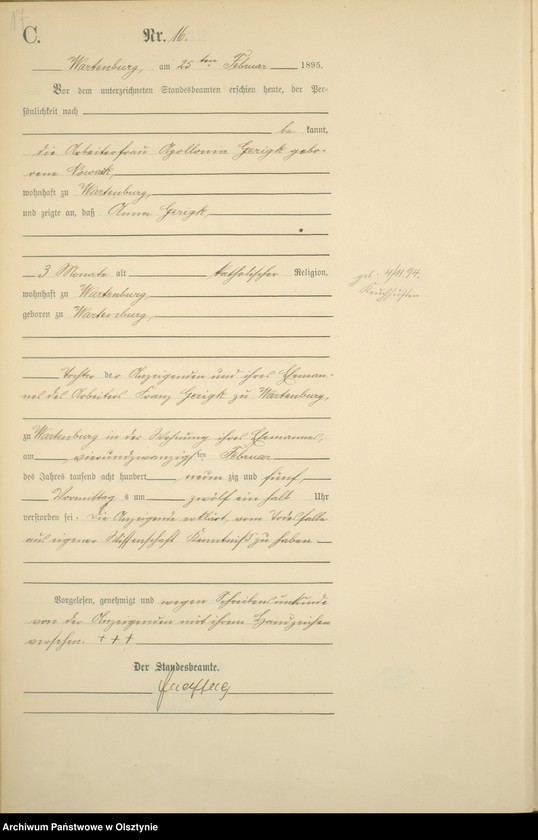 17
C.
Nr. 16.
Wartenburg, am 25ten Februar 1895.
Vor dem unterzeichneten Standesbeamten erschien heute, der Per-
sönlichkeit nach
be kannt,
die Arbeiterfrau Apollonia Gerigk gebo-
rene Nowak,
wohnhaft zu Wartenburg,
und zeigte an, daß Anna Gerigk,
3 Monate alt katholischer Religion,
geb. 4/11.94.
Keuchhusten
wohnhaft zu Wartenburg,
geboren zu Wartenburg,
Tochter der Anzeigenden und ihres Eheman-
nes des Arbeiters Franz Gerigk zu Wartenburg,
zu Wartenburg in der Wohnung ihres Ehemannes,
am vierundzwanzigsten Februar
des Jahres tausend acht hundert neun zig und fünf,
Vormittag s um zwölf ein halb Uhr
verstorben sei. Die Anzeigende erklärt, vom Todesfalle
aus eigener Wissenschaft Kenntniß zu haben
Vorgelesen, genehmigt und wegen Schreibensunkunde
von der Anzeigenden mit ihrem Handzeichen
versehen. + + +
Der Standesbeamte.
Archiwum Państwowe w Olsztynie